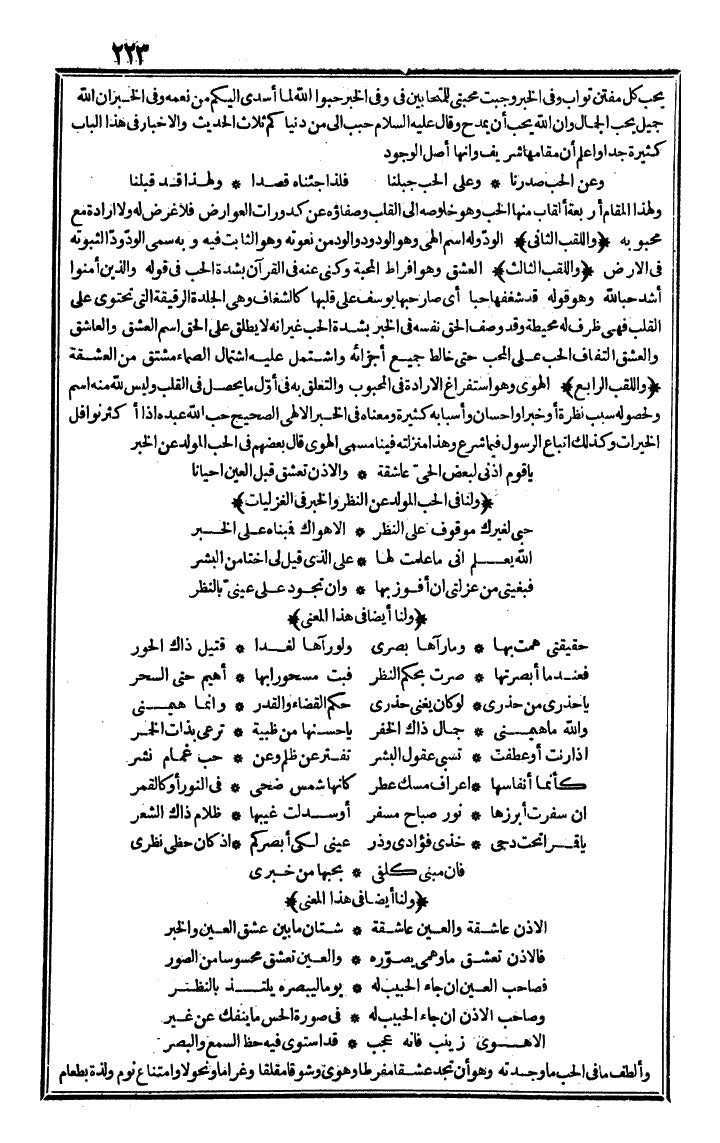 ٢٢٣
يحب كل مفتن تواب وفى الخبر وجبت محبتى للمتحابين فى وفى الخبر حبوا الله لما أسدى اليكم من نعمه وفى الخبر ان الله
جميل يحب الجمال وان الله يحب أن يمدح وقال عليه السلام حبب الى من دنياكم ثلاث الحديث والاخبار فى هذا الباب
كثيرة جدا واعلم أن مقامها شريف وانها أصل الوجود
وعن الحب صدرنا * وعلى الحب جبلنا فلذا جئناه قصدا * ولهذا قد قبلنا
ولهذا المقام أربعة ألقاب منها الحب وهو خلوصه الى القلب وصفاؤه عن كدورات العوارض فلا غرض له ولا ارادة مع
محبوبه ﴿واللقب الثانى﴾ الود وله اسم الهى وهو الودود والود من نعوته وهو الثابت فيه وبه سمى الود ودّا لثبوته
فى الارض ﴿واللقب الثالث﴾ العشق وهو افراط المحبة وكنى عنه فى القرآن بشدة الحب فى قوله والذين آمنوا
أشد حبا لله وهو قوله قد شغفها حبا أى صار حبها يوسف على قلبها كالشغاف وهى الجلدة الرقيقة التى تحتوى على
القلب فهى ظرف له محيطة وقد وصف الحق نفسه فى الخبر بشدة الحب غير انه لا يطلق على الحق اسم العشق والعاشق
والعشق التفاف الحب على المحب حتى خالط جميع أجزائه واشتمل عليه اشتمال الصماء مشتق من العشقة
﴿واللقب الرابع﴾ الهوى وهو استفراغ الارادة فى المحبوب والتعلق به فى أوّل ما يحصل فى القلب وليس لله منه اسم
ولحصوله سبب نظرة أو خبر او احسان وأسبابه كثيرة ومعناه فى الخبر الالهى الصحيح حب الله عبده اذا أكثر نوافل
الخيرات وكذلك اتباع الرسول فيما شرع وهذا منزلته فينا مسمى الهوى قال بعضهم فى الحب المولد عن الخبر
ياقوم اذنى لبعض الحىّ عاشقة * والاذن تعشق قبل العين احيانا
﴿ولنا فى الحب المولد عن النظر والخبر فى الغزليات﴾
حبى لغيرك موقوف على النظر * الا هواك فبناه على الخبر
الله يعلم انى ما علمت لها * على الذى قيل لى اختا من البشر
فبغيتى من عزلتى ان أفوز بها * وان تجود على عينىّ بالنظر
﴿ولنا أيضا فى هذا المعنى﴾
حقيقتى همت بها * وما رآها بصرى ولو رآها لغدا * قتيل ذاك الحور
فعندما أبصرتها * صرت بحكم النظر فبت مسحورا بها * أهيم حتى السحر
ياحذرى من حذرى * لو كان يغنى حذرى حكم القضاء والقدر * وانما هيمنى
والله ما هيمنى * جمال ذاك الخفر ياحسنها من ظبية * ترعى بذات الخمر
اذا رنت أو عطفت * تسبى عقول البشر تفتر عن ظلم وعن * حب غمام نشر
كأنما أنفاسها * اعراف مسك عطر كانها شمس ضحى * فى النور أو كالقمر
ان سفرت أبرزها * نور صباح مسفر أو سدلت غيبها * ظلام ذاك الشعر
ياقمرا تحت دجى * خذى فؤادى وذر عينى لكى أبصركم * اذ كان حظى نظرى
فان مبنى كلفى * بحبها من خبرى
﴿ولنا أيضا فى هذا المعنى﴾
الاذن عاشقة والعين عاشقة * شتان ما بين عشق العين والخبر
فالاذن تعشق ما وهمى يصوّره * والعين تعشق محسوسا من الصور
فصاحب العين ان جاء الحبيب له * يوما ليبصره يلتذ بالنظر
وصاحب الاذن ان جاء الحبيب له * فى صورة الحس ما ينفك عن غير
الا هوى زينب فانه عجب * قد استوى فيه حظ السمع والبصر
وألطف ما فى الحب ما وجدته وهو أن تجد عشقا مفرطا وهوى وشوقا مقلقا وغراما ونحولا وامتناع نوم ولذة بطعام